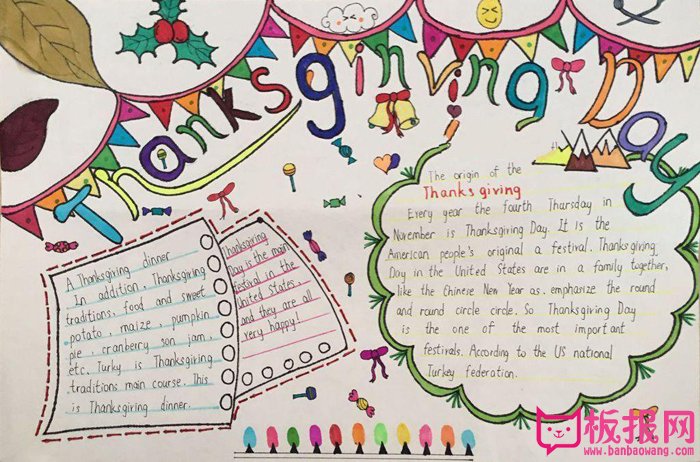 Thanksgivinng Day
A Thanksgiving dinner
In addition, Thanksgiving
traditions, food and sweet
potato, maize, pumpkin
pie, cranberry son jam,
etc. Turky is Thanksgiving
traditions main course. This
is Thanksgiving dinner.
Thanksgiving
Day is the main
festival in the
United States,
and they are all
very happy!
The origin of the
Thanks giving
Every year the fourth Thursday in
November is Thanksgiving Day. It is the
American people's original a festival. Thanksgiving
Day in the United States are in a family together,
like the Chinese New Year as. emphasize the round
and round circle circle. So Thanksgiving Day
is the one of the most important
festivals. According to the US national
Turkey federation.
板报网
www.banbaowang.com